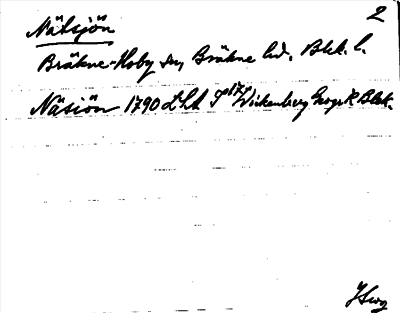 2
Nätsjön
Bräkne-Hoby sn Bräkne hd. Blek. l.
Näsiön 1790 LHA Wickenberg Geogr K Blek.